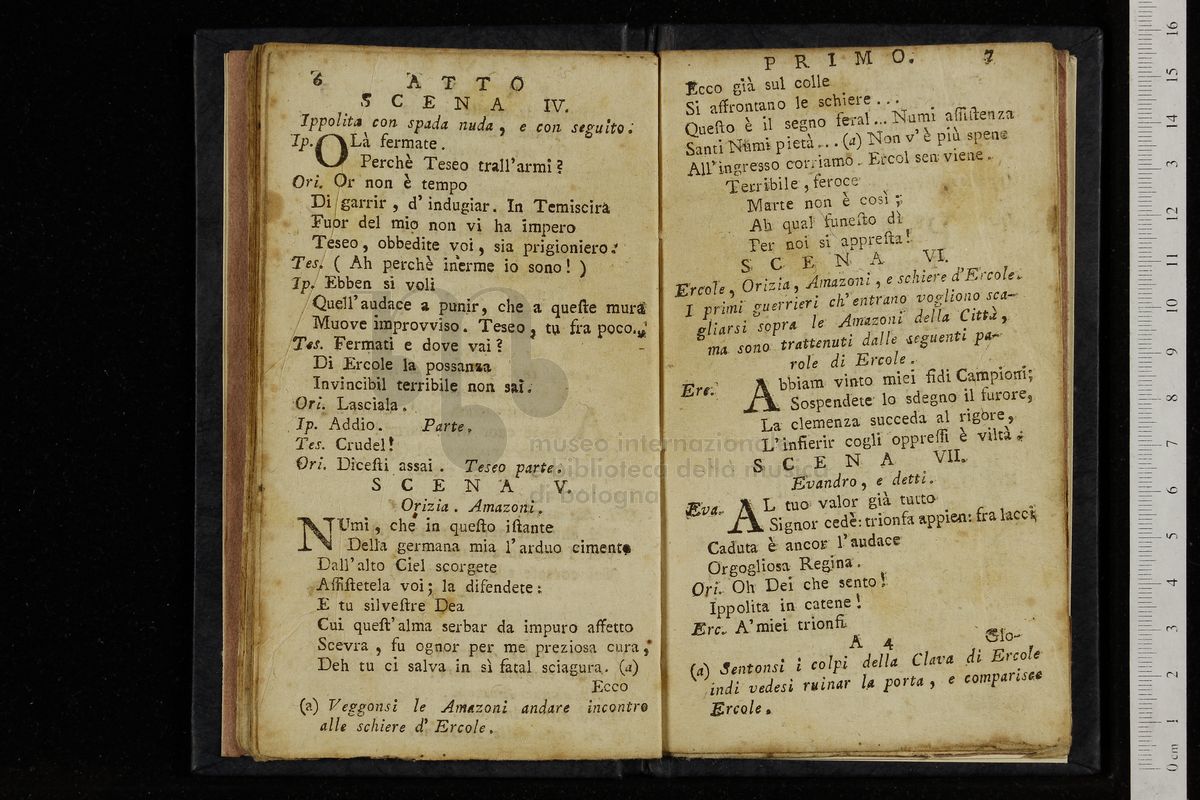 6 ATTO
SCENA IV.
Ippolita con spada nuda, e con seguito.
Ip. OLà fermate.
Perchè Teseo trall'armi?
Ori. Or non è tempo
Di garrir, d'indugiar. In Temiscira
Fuor del mio non vi ha impero
Teseo, obbedite voi, sia prigioniero.
Tes. (Ah perchè inerme io sono!)
Ip. Ebben si voli
Quell'audace a punir, che a queſte mura
Muove improvviso. Teseo, tu fra poco...
Tes. Fermati e dove vai?
Di Ercole la possanza
Invincibil terribile non sai.
Ori. Lasciala.
Ip. Addio. Parte.
Tes. Crudel!
Ori. Diceſti assai. Teseo parte.
SCENA V.
Orizia. Amazoni.
NUmi, che in queſto iſtante
Della germana mia l'arduo cimento
Dall'alto Ciel scorgete
Aſſiſtetela voi; la difendete:
E tu silveſtre Dea
Cui queſt'alma serbar da impuro affetto
Scevra, fu ognor per me preziosa cura,
Deh tu ci salva in sì fatal sciagura. (a)
Ecco
(a) Veggonsi le Amazoni andare incontro
alle schiere d'Ercole.
PRIMO. 7
Ecco già sul colle
Si affrontano le schiere...
Queſto è il segno feral... Numi aſſiſtenza
Santi Numi pietà... (a) Non v'è più spene
All'ingresso corriamo. Ercol sen viene.
Terribile, feroce
Marte non è così;
Ah qual funeſto dì
Per noi si appreſta!
SCENA VI.
Ercole, Orizia, Amazoni, e schiere d'Ercole.
I primi guerrieri ch'entrano vogliono sca-
gliarsi sopra le Amazoni della Città,
ma sono trattenuti dalle seguenti pa-
role di Ercole.
Erc. Abbiam vinto miei fidi Campioni;
Sospendete lo sdegno il furore,
La clemenza succeda al rigore,
L'infierir cogli oppreſſi è viltà.
SCENA VII.
Evandro, e detti.
Eva. AL tuo valor già tutto
Signor cedè: trionfa appien: fra lacci
Caduta è ancor l'audace
Orgogliosa Regina.
Ori. Oh Dei che sento!
Ippolita in catene!
Erc. A'miei trionfi
A 4 Glo-
(a) Sentonsi i colpi della Clava di Ercole
indi vedesi ruinar la porta, e comparisce
Ercole.
museo internazionale
e biblioteca della musica
di bologna
0 cm 1 2 3 4 5 6 7 8 9 10 11 12 13 14 15 16